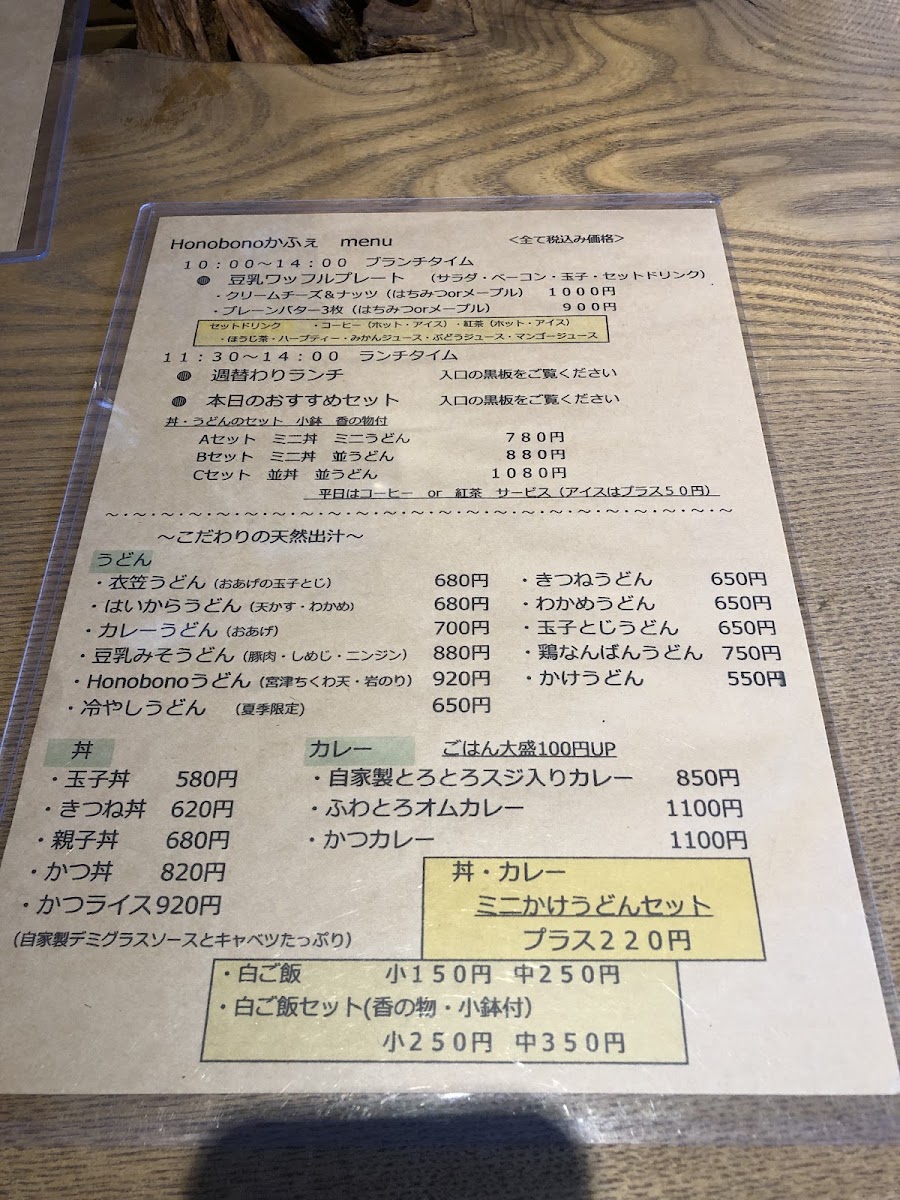 Honobonoかふぇ menu <全て税込み価格>
10:00~14:00 ブランチタイム
● 豆乳ワッフルプレート (サラダ・ベーコン・玉子・セットドリンク)
・クリームチーズ&ナッツ (はちみつorメープル) 1000円
・プレーンバター3枚 (はちみつorメープル) 900円
セットドリンク ・コーヒー (ホット・アイス) ・紅茶 (ホット・アイス)
・ほうじ茶・ハーブティー・みかんジュース・ぶどうジュース・マンゴージュース
11:30~14:00 ランチタイム
● 週替わりランチ 入口の黒板をご覧ください
● 本日のおすすめセット 入口の黒板をご覧ください
丼・うどんのセット 小鉢 香の物付
Aセット ミニ丼 ミニうどん 780円
Bセット ミニ丼 並うどん 880円
Cセット 並丼 並うどん 1080円
平日はコーヒー or 紅茶 サービス (アイスはプラス50円)
~・~・~・~・~・~・~・~・~・~・~・~・~・~・~・~・~・~・~・~・~・~・~
~こだわりの天然出汁~
うどん
・衣笠うどん (おあげの玉子とじ) 680円 ・きつねうどん 650円
・はいからうどん (天かす・わかめ) 680円 ・わかめうどん 650円
・カレーうどん (おあげ) 700円 ・玉子とじうどん 650円
・豆乳みそうどん (豚肉・しめじ・ニンジン) 880円 ・鶏なんばんうどん 750円
・Honobonoうどん (宮津ちくわ天・岩のり) 920円 ・かけうどん 550円
・冷やしうどん (夏季限定) 650円
丼 カレー ごはん大盛100円UP
・玉子丼 580円 ・自家製とろとろスジ入りカレー 850円
・きつね丼 620円 ・ふわとろオムカレー 1100円
・親子丼 680円 ・かつカレー 1100円
・かつ丼 820円 丼・カレー
・かつライス920円 ミニかけうどんセット
(自家製デミグラスソースとキャベツたっぷり) プラス220円
・白ご飯 小150円 中250円
・白ご飯セット(香の物・小鉢付)
小250円 中350円